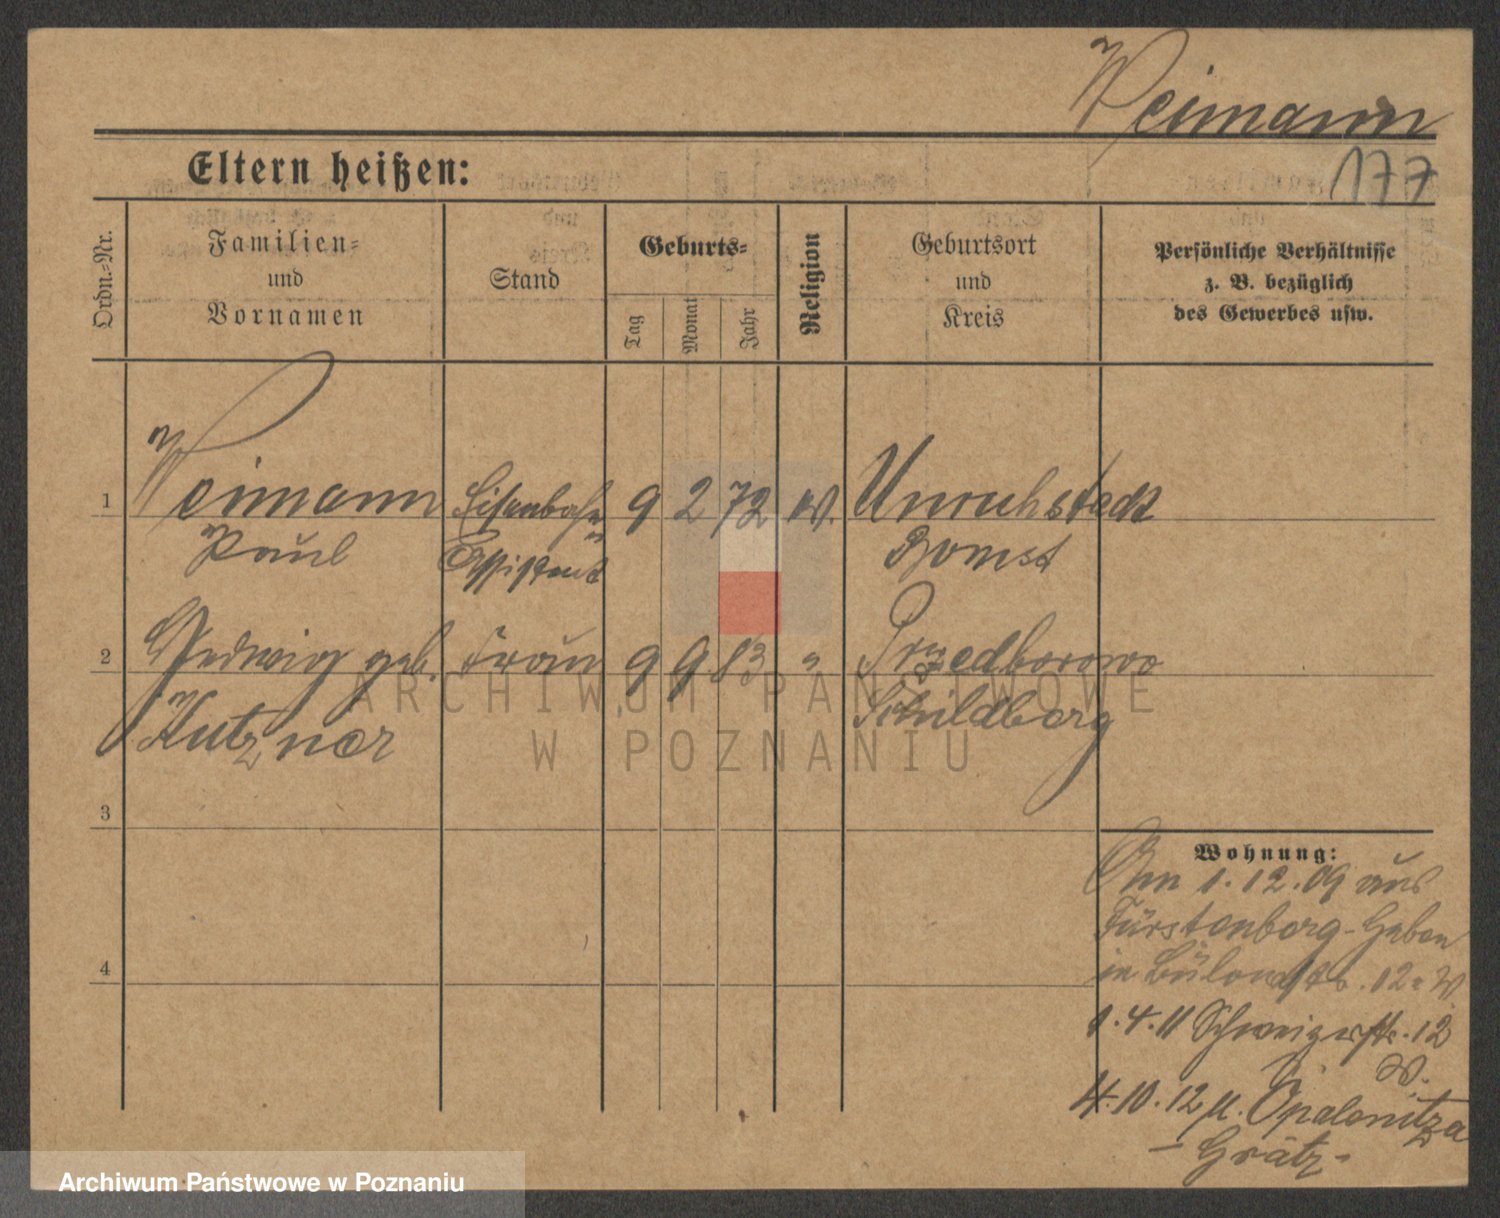 Weimann
177
Eltern heißen:
Ordn.-Nr.
Familien-
und
Vornamen
Stand
Geburts-
Tag
Monat
Jahr
Religion
Geburtsort
und
Kreis
Persönliche Verhältnisse
z. B. bezüglich
des Gewerbes usw.
1 Weimann Eisenbahn 9 2 72 Unruhstadt
Paul Assistent Bomst
2 Hedwig geb. Frau 9 9 83 " Przedborowo
Kutzner Schildberg
3
4
Wohnung:
Am 1.12.09 aus
Fürstenberg-
in Bülowstr. 12
1.4.11 12
W.
4.10.12 n. Opalenitza
- Grätz -
ARCHIWUM PAŃSTWOWE
W POZNANIU
Archiwum Państwowe w Poznaniu